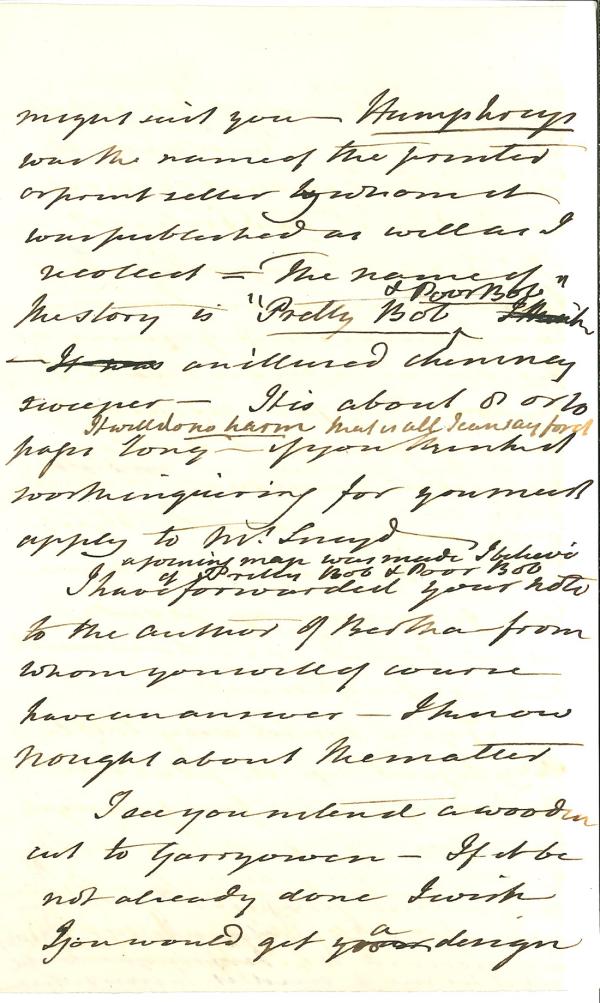 might suit you — Humphreys
was the name of the printer
or print seller by whom it
was published as well as I
recollect = The name of
& Poor Bob"
the story is "Pretty Bob I think
— It was an illused chimney
sweeper — It is about 8 or 10
It will do no harm that is all I can say for it
pages long — if you think it
worth inquiring for you must
apply to Mr. Sneyd
a sewing map was made I believe
of Pretty Bob & Poor Bob
I have forwarded your note
to the author of Bertha from
whom you will of course
have an answer — I know
nought about the matter
I see you intend a wooden
cut to Garryowen — If it be
not already done I wish
you would get a
your design